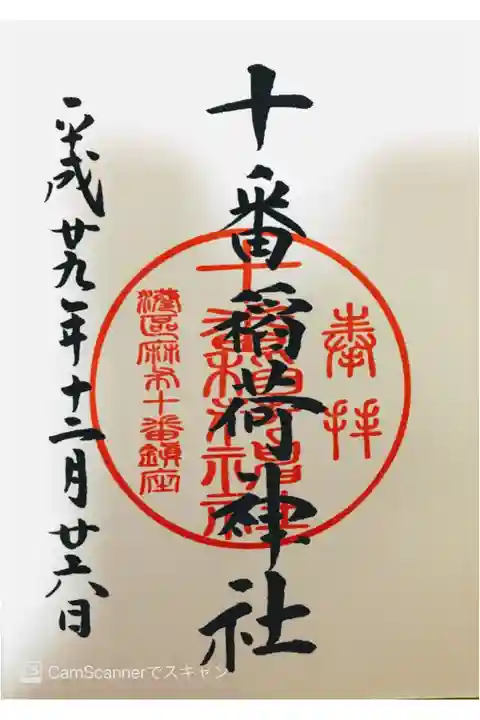 奉拝
十番稲荷神社
十番稲荷神社
港區麻布十番鎮座
平成廿九年十二月廿六日
CS CamScannerでスキャン